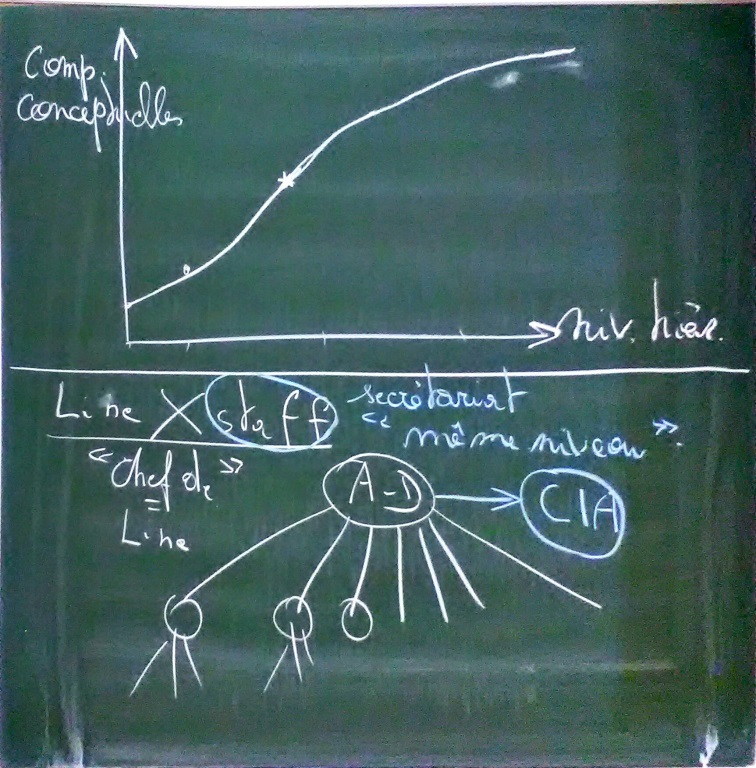 Comp.
Conceptuelles
niv. hiér.
Line X staff secrétariat
" même niveau ".
" Chef de "
=
Line
A-D
CIA